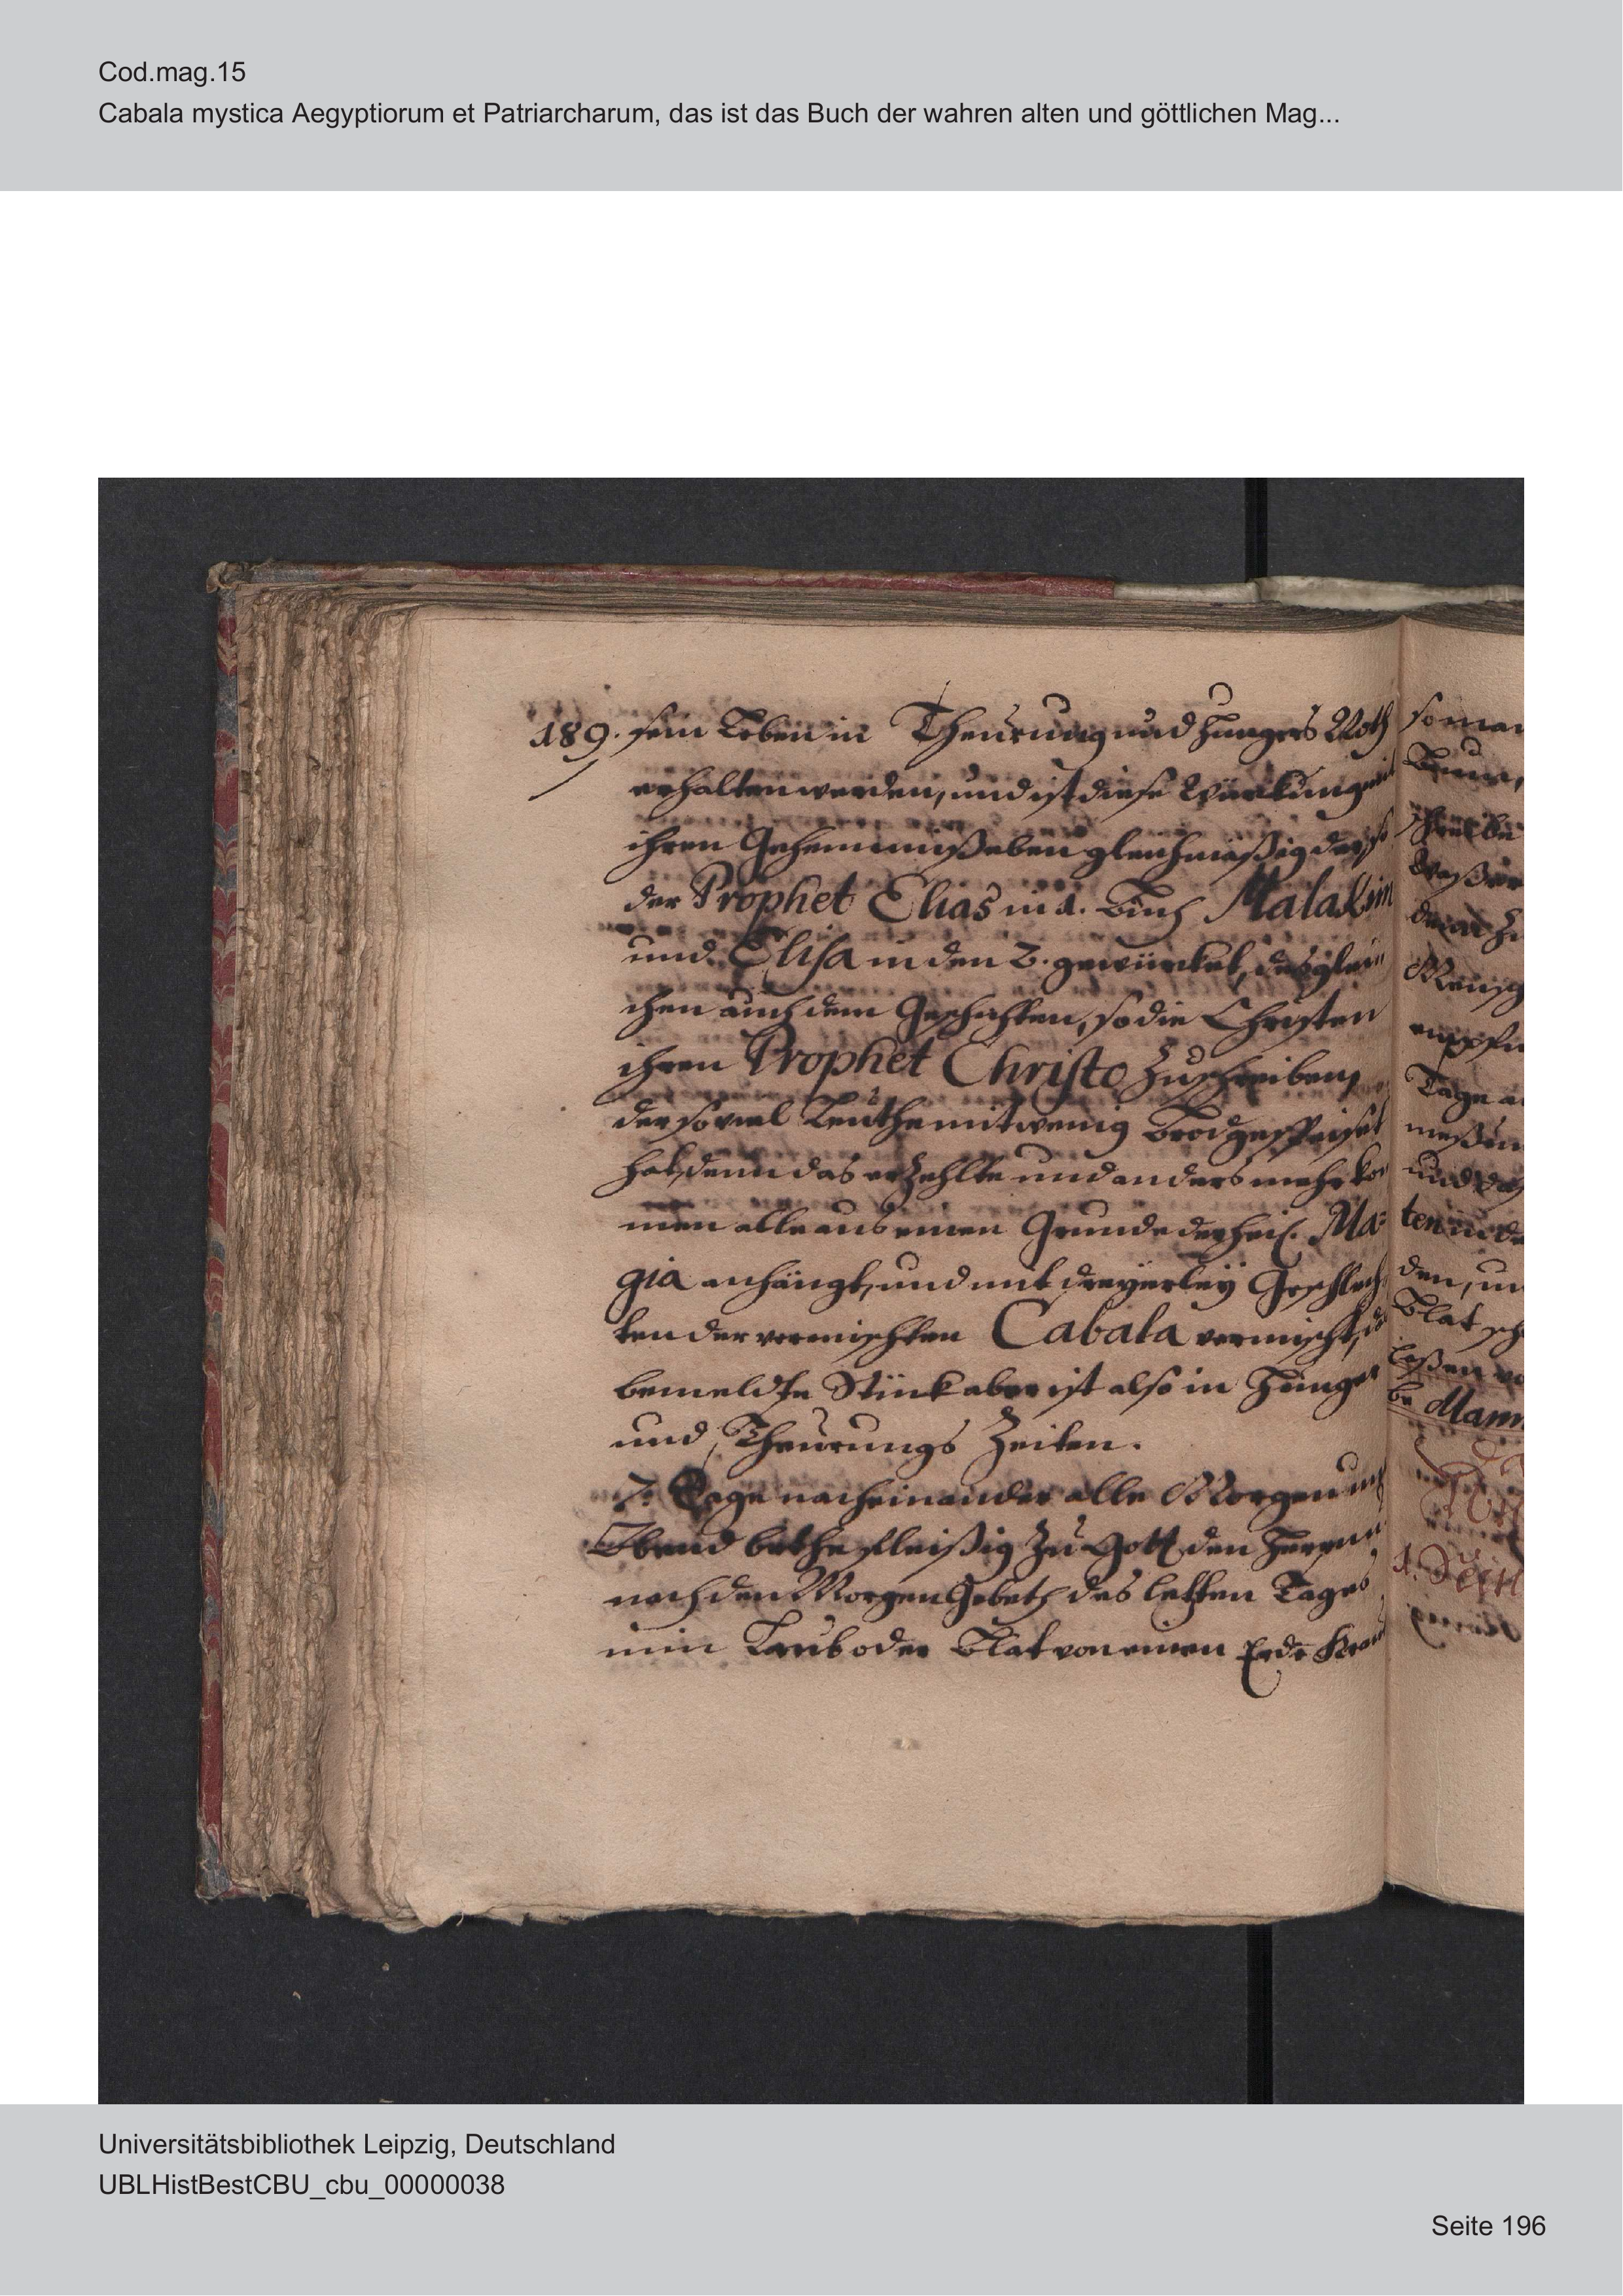 Cod.mag.15
Cabala mystica Aegyptiorum et Patriarcharum, das ist das Buch der wahren alten und göttlichen Mag...
189. sein Leben in Theurung und Hungers Noth
erhalten werden, und ist diese Würkung mit
ihren Geheimniß eben gleichmäßig der, so
der Prophet Elias in 1. Buch Malakim
und Elisa in den 2. gewürcket, desglei
chen auch dem Geschichten, so die Christen
ihren Prophet Christo zuschreiben,
der so viel Leuthe mit wenig Brod gespeiset
hat, denn das erzehlte und anders mehr kom
men alle aus einen Grunde der heil. Ma=
gia anhängt, und mit dreyerley Geschlech
ten der vermischten Cabala vermischt,
bemeldte Stück aber ist also in Hunger
und Theurungs Zeiten.
7. Tage nacheinander alle Morgen und
Abend bethe fleißig zu Gott den Herrn,
nach den Morgen Gebeth des letzten Tages
nim Laub oder Blat von einen Erde Kraut
so man
schreibe
Waßer
Mensch
Tage
und
ten in de
den, un
Blat
laßen
be Mann
Universitätsbibliothek Leipzig, Deutschland
UBLHistBestCBU_cbu_00000038
Seite 196